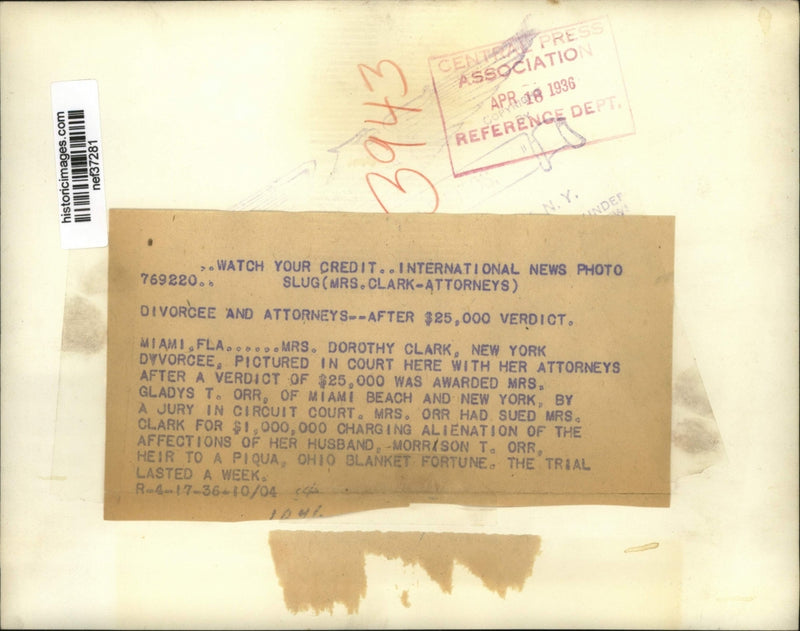 historicimages.com
nef37281
3943
CENTRAL PRESS
ASSOCIATION
APR 18 1936
REFERENCE DEPT.
N. Y.
UNDER
..WATCH YOUR CREDIT..INTERNATIONAL NEWS PHOTO
769220.. SLUG(MRS.CLARK-ATTORNEYS)
DIVORCEE AND ATTORNEYS--AFTER $25,000 VERDICT.
MIAMI,FLA......MRS. DOROTHY CLARK, NEW YORK
DVVORCEE, PICTURED IN COURT HERE WITH HER ATTORNEYS
AFTER A VERDICT OF $25,000 WAS AWARDED MRS.
GLADYS T. ORR, OF MIAMI BEACH AND NEW YORK, BY
A JURY IN CIRCUIT COURT. MRS. ORR HAD SUED MRS.
CLARK FOR $1,000,000 CHARGING ALIENATION OF THE
AFFECTIONS OF HER HUSBAND, MORRISON T. ORR,
HEIR TO A PIQUA, OHIO BLANKET FORTUNE. THE TRIAL
LASTED A WEEK.
R-4-17-36-10/04